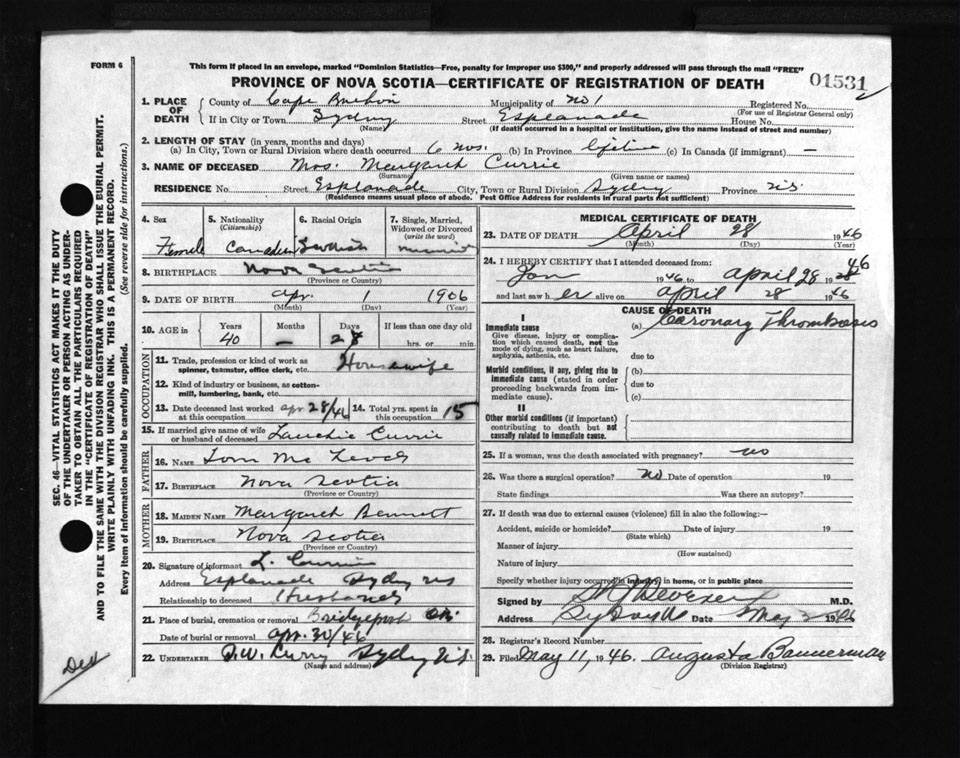 FORM 6
This form if placed in an envelope, marked "Dominion Statistics—Free, penalty for improper use $300," and properly addressed will pass through the mail "FREE"
PROVINCE OF NOVA SCOTIA—CERTIFICATE OF REGISTRATION OF DEATH
01531
1. PLACE OF DEATH
County of Cape Breton Municipality of No 1 Registered No.
(For use of Registrar General only)
If in City or Town Sydney Street Esplanade House No.
(Name) (If death occurred in a hospital or institution, give the name instead of street and number)
2. LENGTH OF STAY (in years, months and days)
(a) In City, Town or Rural Division where death occurred 6 mos. (b) In Province lifetime (c) In Canada (if immigrant) —
3. NAME OF DECEASED Mrs. Margaret Currie
(Surname) (Given name or names)
RESIDENCE No. Street Esplanade City, Town or Rural Division Sydney Province N.S.
(Residence means usual place of abode. Post Office Address for residents in rural parts not sufficient)
4. Sex
Female
5. Nationality
(Citizenship)
Canadian
6. Racial Origin
7. Single, Married, Widowed or Divorced
(write the word)
8. BIRTHPLACE Nova Scotia
(Province or Country)
9. DATE OF BIRTH Apr. 1 1906
(Month) (Day) (Year)
10. AGE in
Years Months Days If less than one day old
40 — 28 hrs. or min.
OCCUPATION
11. Trade, profession or kind of work as spinner, teamster, office clerk, etc. Housewife
12. Kind of industry or business, as cotton-mill, lumbering, bank, etc.
13. Date deceased last worked at this occupation Apr 28/46 14. Total yrs. spent in this occupation 15
15. If married give name of wife or husband of deceased Lauchie Currie
FATHER
16. NAME Tom
17. BIRTHPLACE Nova Scotia
(Province or Country)
MOTHER
18. MAIDEN NAME Margaret Bennett
19. BIRTHPLACE Nova Scotia
(Province or Country)
20. Signature of informant L. Currie
Address Esplanade Sydney NS
Relationship to deceased Husband
21. Place of burial, cremation or removal Bridgeport
Date of burial or removal Apr. 30/46
22. UNDERTAKER D.W. Curry Sydney N.S.
(Name and address)
MEDICAL CERTIFICATE OF DEATH
23. DATE OF DEATH April 28 1946
(Month) (Day) (Year)
24. I HEREBY CERTIFY that I attended deceased from:
Jan 1946 to April 28 1946
and last saw her alive on April 28 1946
CAUSE OF DEATH
I
Immediate cause
Give disease, injury or complication which caused death, not the mode of dying, such as heart failure, asphyxia, asthenia, etc.
(a) Coronary Thrombosis
due to
Morbid conditions, if any, giving rise to immediate cause (stated in order proceeding backwards from immediate cause).
(b)
due to
(c)
II
Other morbid conditions (if important) contributing to death but not causally related to immediate cause.
25. If a woman, was the death associated with pregnancy? no
26. Was there a surgical operation? No Date of operation 19
State findings Was there an autopsy?
27. If death was due to external causes (violence) fill in also the following:—
Accident, suicide or homicide? Date of injury 19
(State which)
Manner of injury
(How sustained)
Nature of injury
Specify whether injury occurred in industry, in home, or in public place
Signed by M.D.
Address Sydney Date May 1946
28. Registrar's Record Number
29. Filed May 11, 1946. Augusta Bannerman
(Division Registrar)
SEC. 46—VITAL STATISTICS ACT MAKES IT THE DUTY OF THE UNDERTAKER OR PERSON ACTING AS UNDERTAKER TO OBTAIN ALL THE PARTICULARS REQUIRED IN THE "CERTIFICATE OF REGISTRATION OF DEATH" AND TO FILE THE SAME WITH THE DIVISION REGISTRAR WHO SHALL ISSUE THE BURIAL PERMIT.
WRITE PLAINLY WITH UNFADING INK. THIS IS A PERMANENT RECORD.
Every item of information should be carefully supplied. (See reverse side for instructions.)